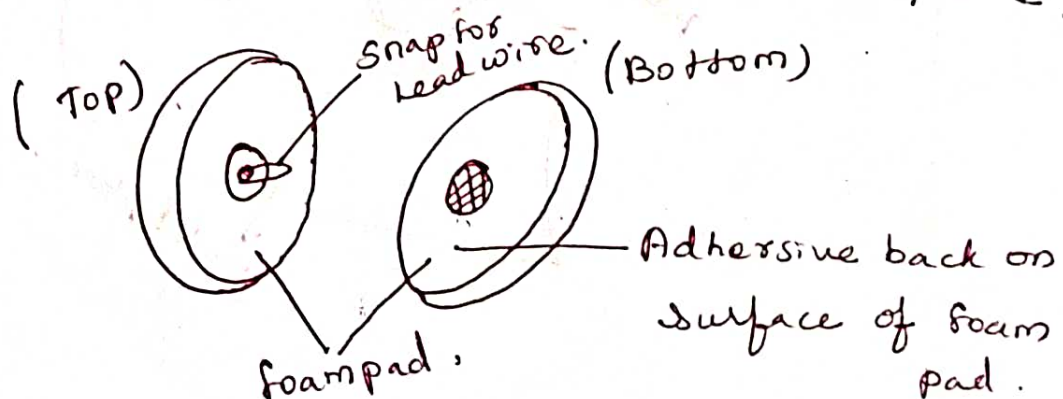 (Top)
Snap for
Lead wire.
(Bottom)
Adhersive back on
surface of foam
pad.
foampad,